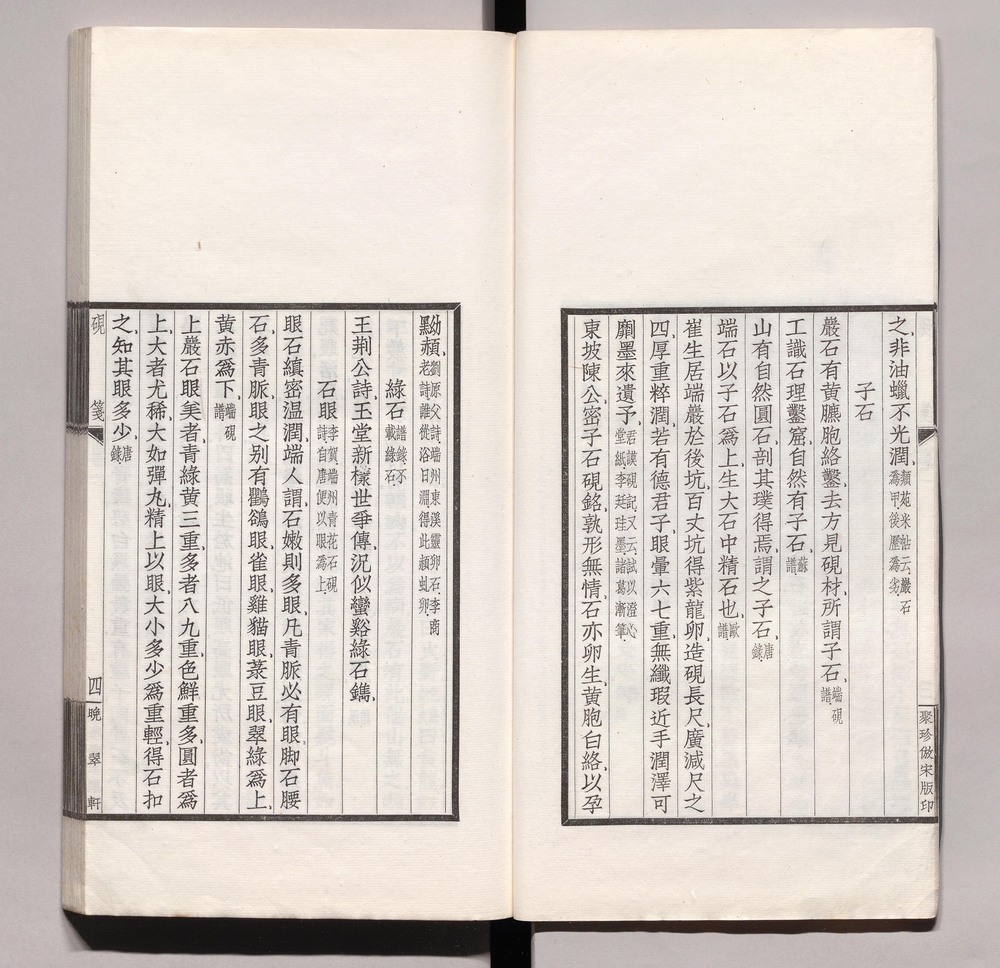 之非油蠟不光潤類苑米帖云巖石爲甲後歷爲劣
子石
巖石有黃臕胞絡鑿去方見硯材所謂子石端硯譜
工識石理鑿窟自然有子石蘇譜
山有自然圓石剖其璞得焉謂之子石唐錄
端石以子石爲上生大石中精石也歐譜
崔生居端巖於後坑百丈坑得紫龍卵造硯長尺廣減尺之
四厚重粹潤若有德君子眼暈六七重無纖瑕近手潤澤可
廟墨來遺予君謨硯記又云試以澄心堂紙李廷珪墨諸葛漸筆
東坡陳公密子石硯銘孰形無情石亦卵生黃胞白絡以孕
聚珍倣宋版印
黝赬劉原父詩端州東溪靈卵石李商老詩誰從浴日淵得此赬虬卵
綠石譜錄不載綠石
王荆公詩玉堂新樣世爭傳況似蠻谿綠石鐫
石眼李賀端州青花石硯詩自唐便以眼爲上
眼石縝密温潤端人謂石嫩則多眼凡青脈必有眼脚石腰
石多青脈眼之别有鸜鵒眼雀眼雞貓眼菉豆眼翠綠爲上
黃赤爲下端硯譜
上巖石眼美者青綠黃三重多者八九重色鮮重多圓者爲
上大者尤稀大如彈丸精上以眼大小多少爲重輕得石扣
之知其眼多少唐錄
硯箋
四
晚翠軒